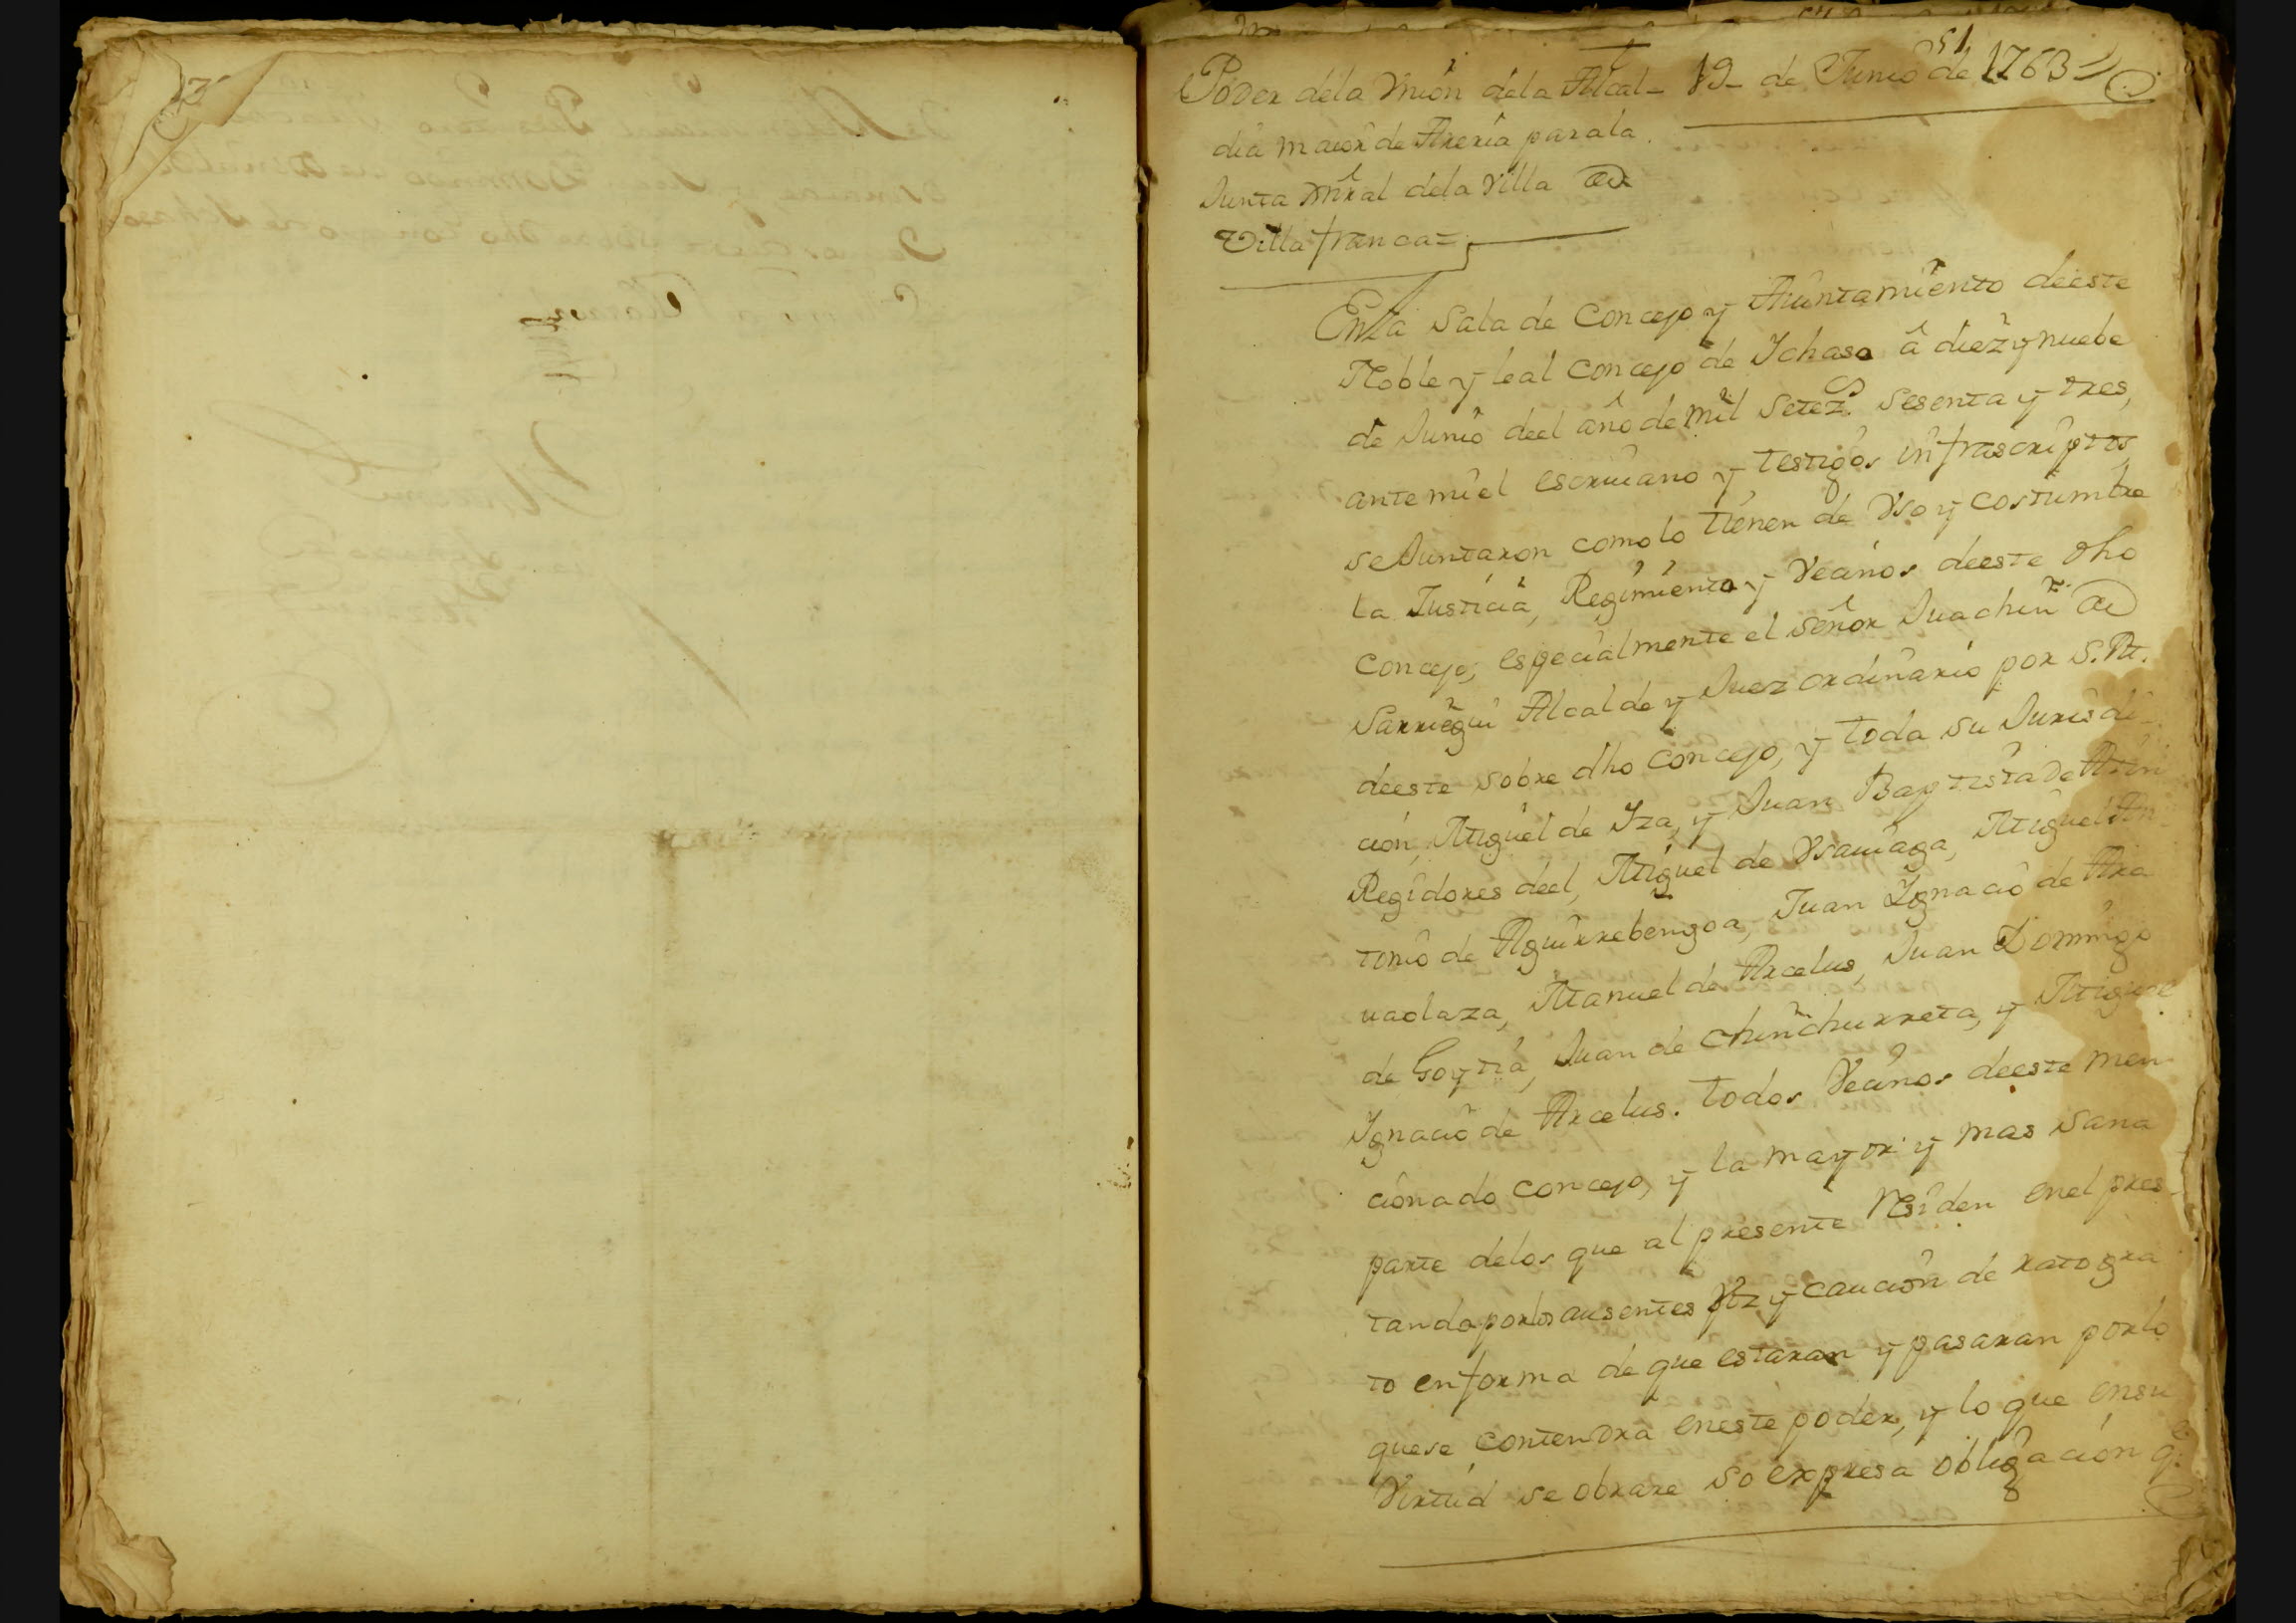 51
Poder dela Union dela Alcal- 19- de Junio de 1763
dia maior de Areria para la
Junta Gnral dela Villa de
Villafranca=
En la sala de Concejo y Aiuntamiento deeste
Noble y leal Concejo de Ichaso â diez y nuebe
de Junio deel año de mil setezs. sesenta y tres,
ante mi el escriuano y testigos infrascriptos,
se Juntaron como lo tienen de Vso y costumbre
la Justicia, Regimiento y Vecinos deeste dho
Concejo, especialmente el señor Juachin de
Sarriegui Alcalde y Juez ordinario por S.M.
deeste sobre dho concejo, y toda su Jurisdi-
cion, Miguel de Iza, y Juan Baptista de
Regidores deel, Miguel de Vsauiaga, Miguel An
tonio de Aguirrebengoa, Juan Ignacio de Ara
uaolaza, Manuel de Arcelus, Juan Domingo
de Goytia, Juan de Chinchurreta, y Miguel
Ignacio de Arcelus. todos Vecinos deeste men
cionado concejo, y la mayor y mas sana
parte delos que al presente Residen enel pres
tando por los ausentes Voz y caucion de rato gra
to en forma de que estaran y pasaran por lo
que se contendra eneste poder, y lo que ensu
Virtud se obrare so expresa obligacion q.e